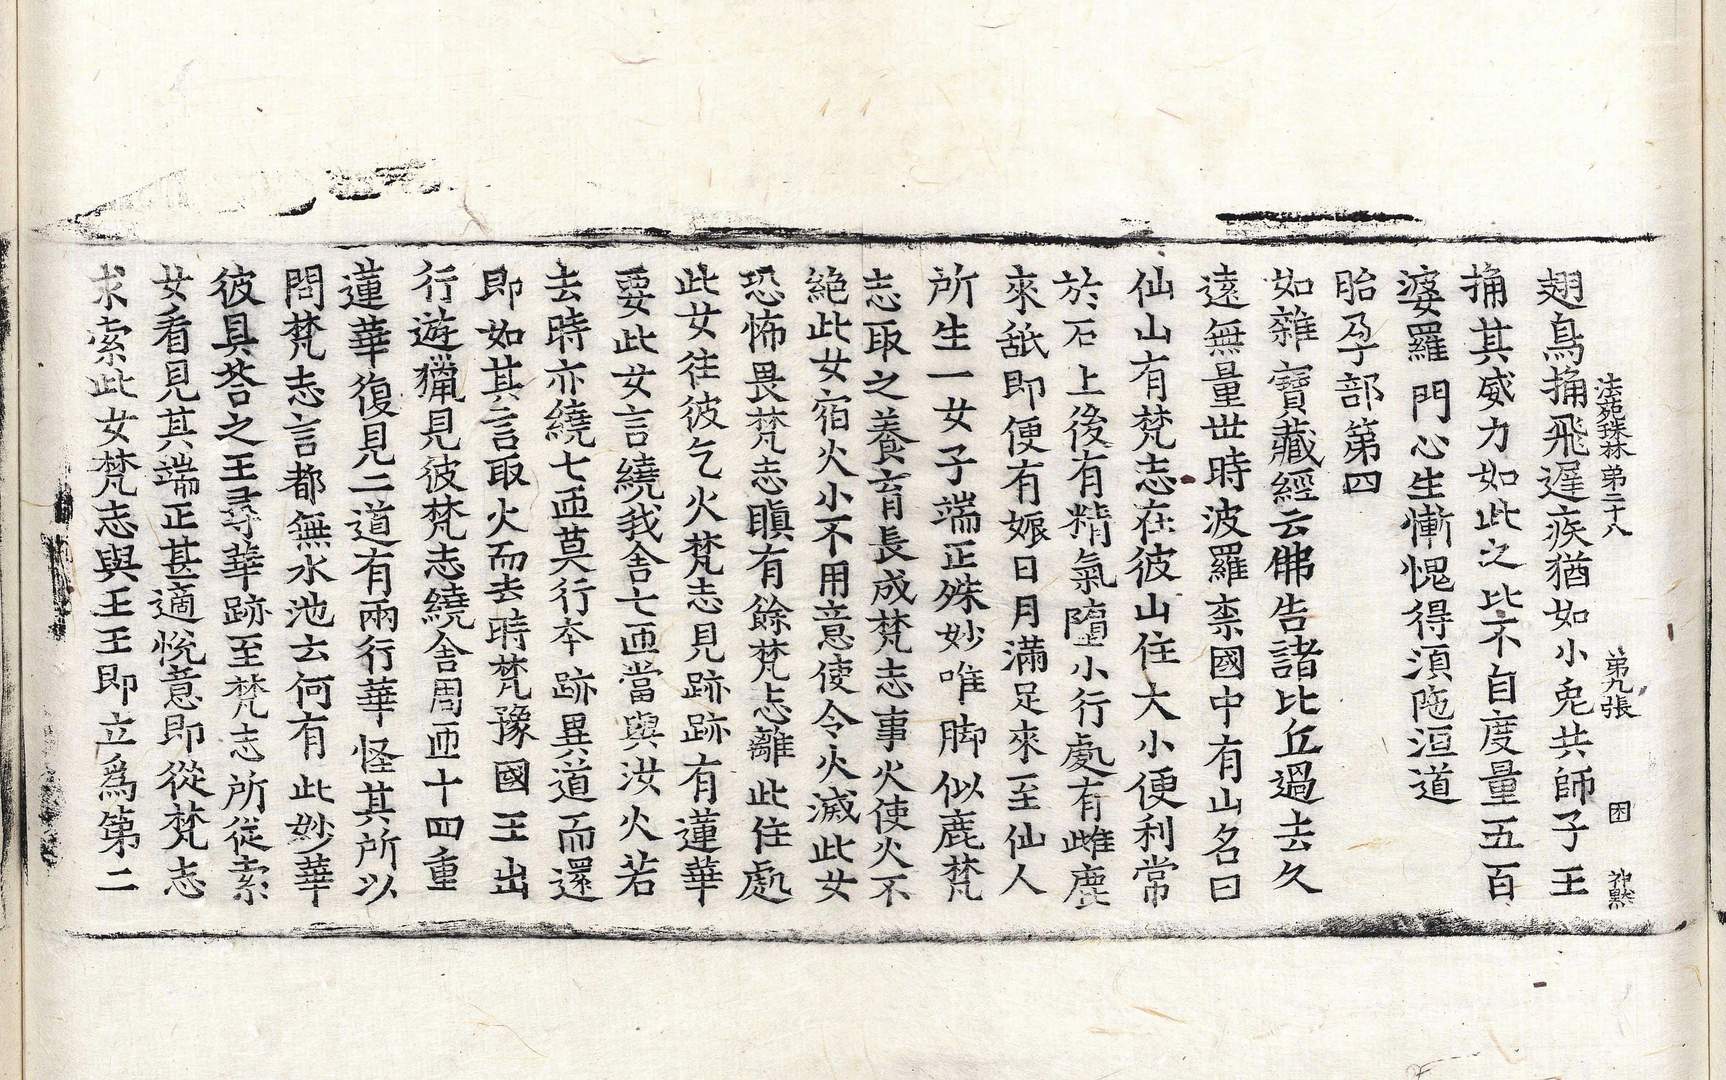 法苑珠林 第二十八 第九張 困 神㸃
翅鳥捔飛遲疾猶如小兎共師子王
捔其威力如此之比不自度量五百
婆羅門心生慚愧得須陁洹道
胎孕部第四
如雜寶藏經云佛告諸比丘過去久
遠無量世時波羅柰國中有山名曰
仙山有梵志在彼山住大小便利常
於石上後有精氣墮小行處有雌鹿
來舐即便有娠日月滿足來至仙人
所生一女子端正殊妙唯脚似鹿梵
志取之養育長成梵志事火使火不
絶此女宿火小不用意使令火滅此女
恐怖畏梵志瞋有餘梵志離此住處
此女往彼乞火梵志見跡跡有蓮華
要此女言繞我舍七匝當與汝火若
去時亦繞七匝莫行本跡異道而還
即如其言取火而去時梵豫國王出
行遊獵見彼梵志繞舍周匝十四重
蓮華復見二道有兩行華怪其所以
問梵志言都無水池云何有此妙華
彼具荅之王尋華跡至梵志所從索
女看見其端正甚適悅意即從梵志
求索此女梵志與王王即立爲第二